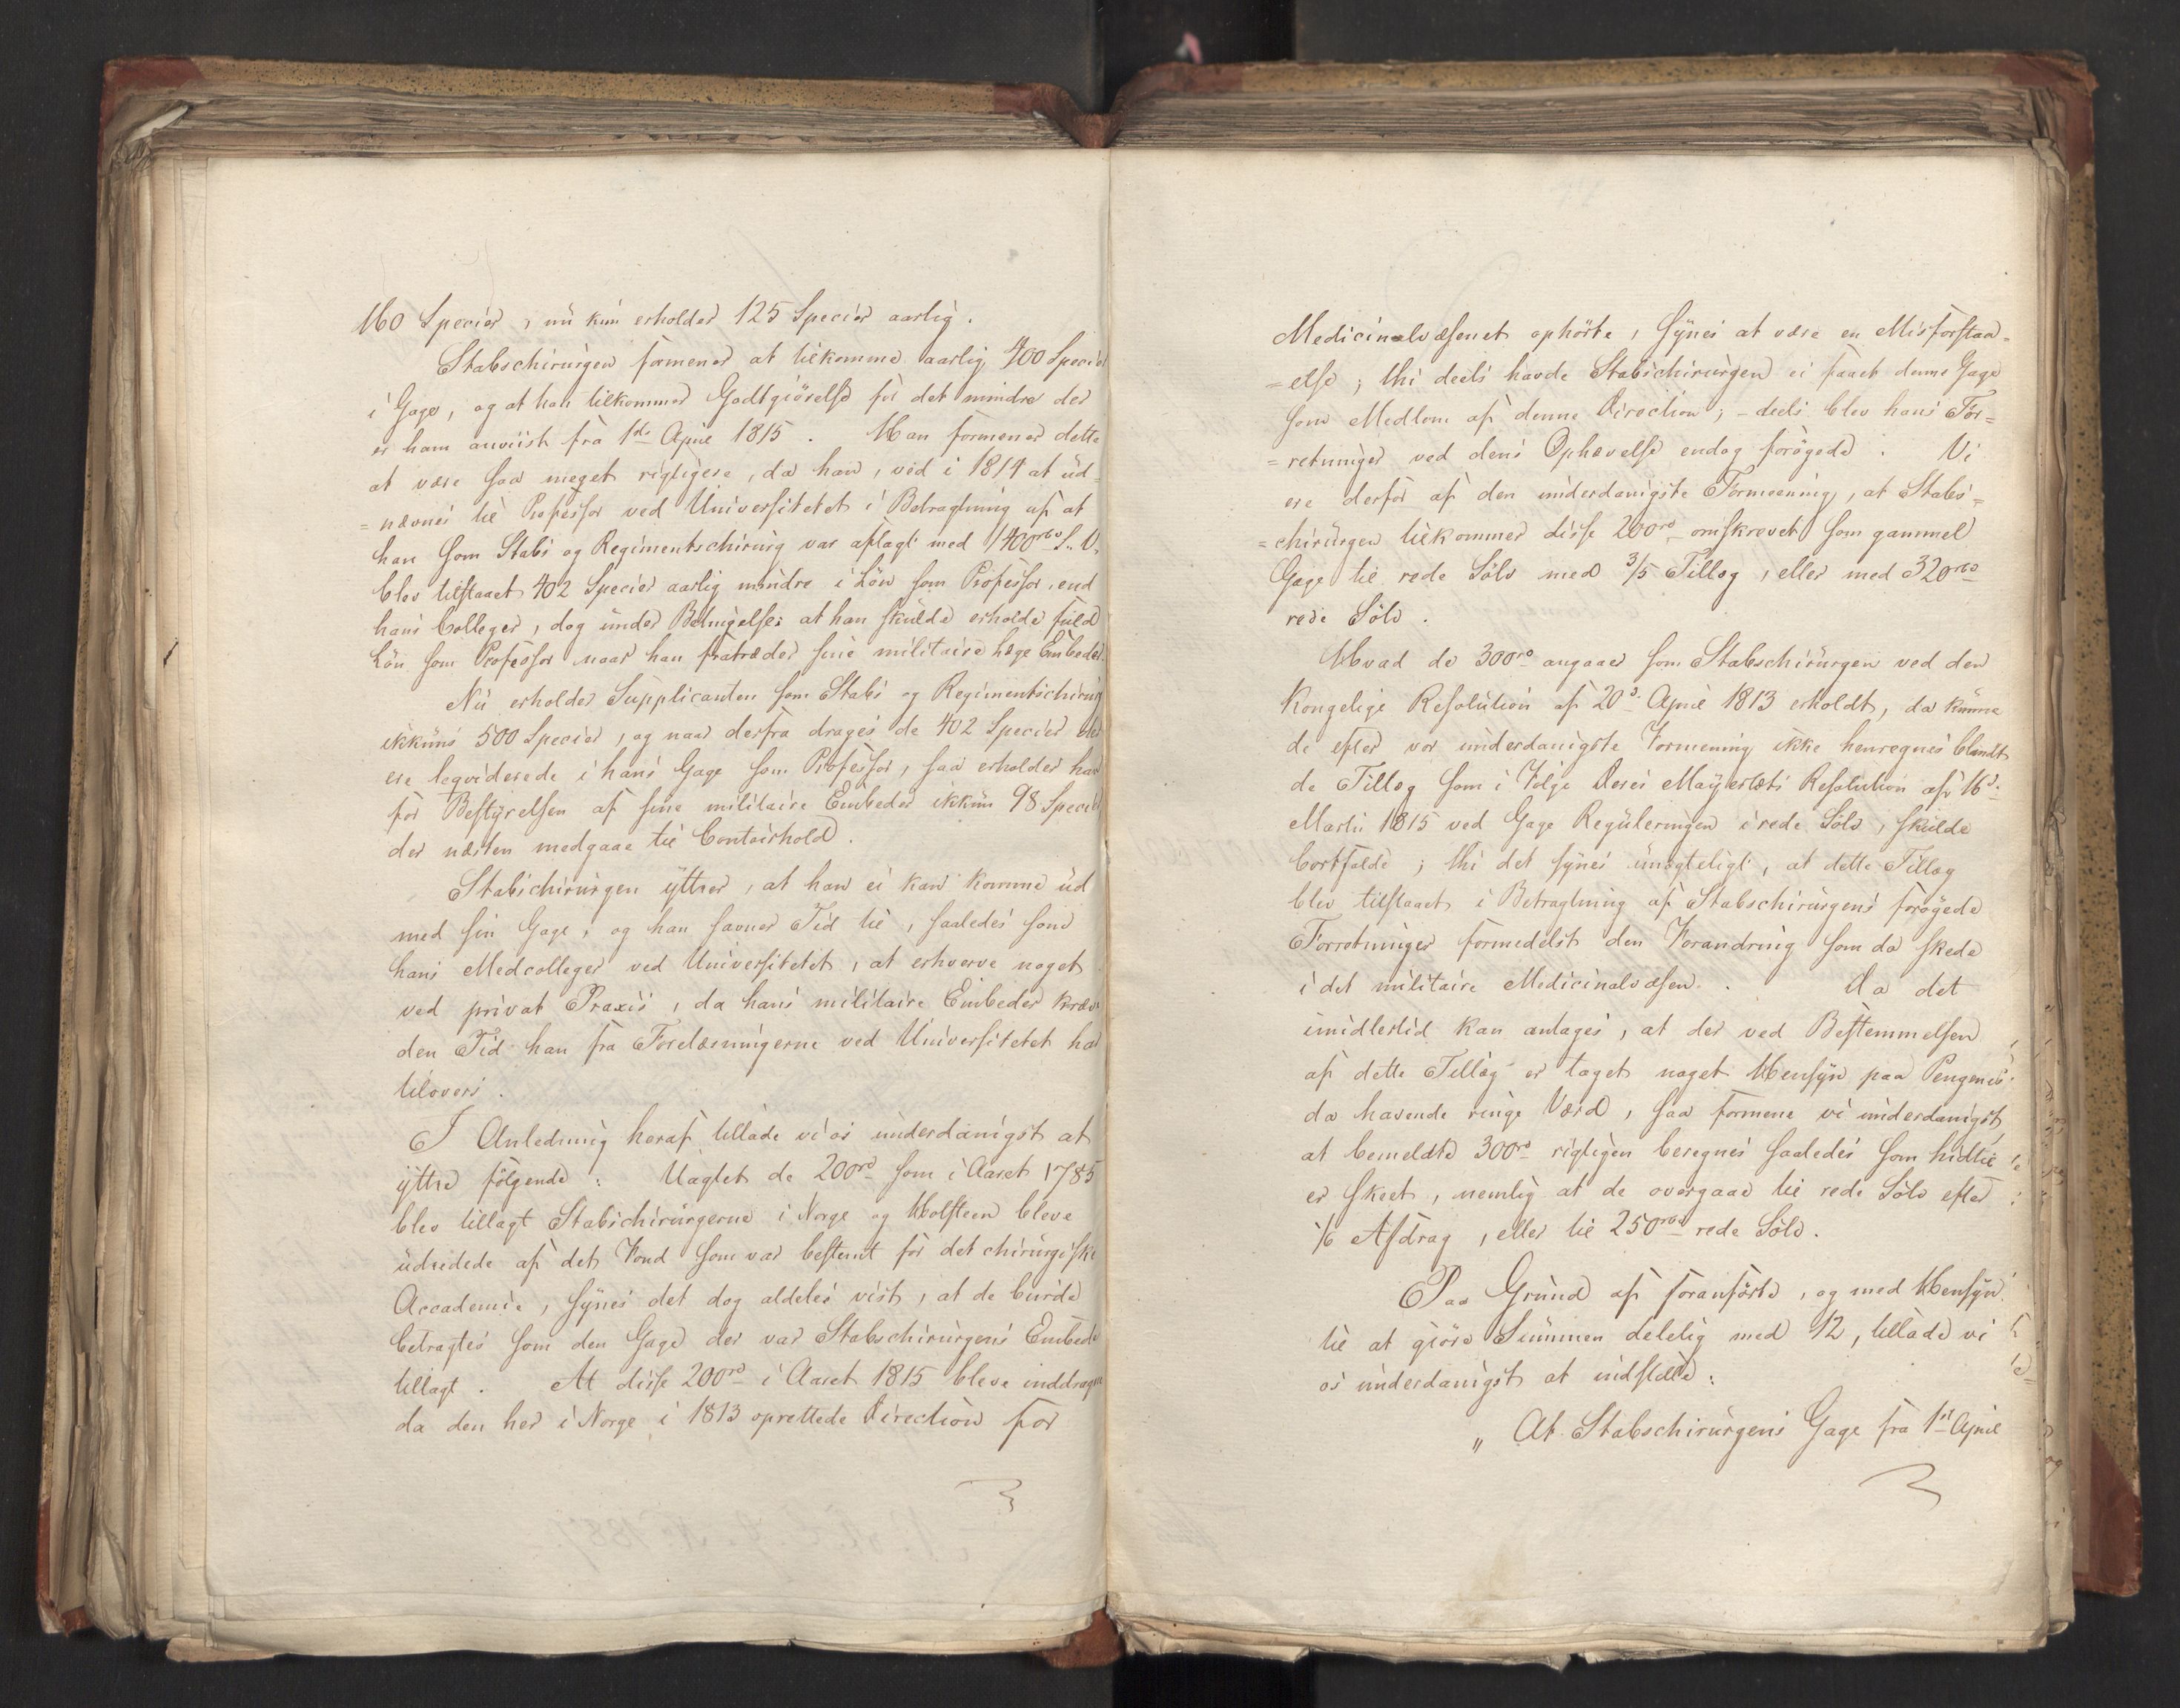 160 Species, nu kun erholder 125 Species aarlig.
Stabschirurgen formener at tilkomme aarlig 400 Species
i Gage, og at han tilkommer Godtgiörelse for det mindre der
er ham anviist fra 1ste April 1815. Man formener dette
at være saa meget rigtigere, da han, ved i 1814 at ud-
=nævnes til Professor ved Universitetet i Betragtning af at
han som Stabs og Regimentschirurg var aflagt med 1400rbd S.V.
blev tilstaaet 402 Species aarlig mindre i Lön som Professor, end
hans Colleger, dog under Betingelse: at han skulde erholde fuld
Lön som Professor naar han fratræder sine militaire Læge Embeder.
Nu erholder Supplicanten som Stabs og Regimentschirurg
ikkuns 500 Species, og naar derfra drages de 402 Species der
ere liqviderede i hans Gage som Professor, saa erholder han
for Bestyrelsen af sine militaire Embeder ikkun 98 Species
der næsten medgaae til Contoirhold.
Stabschirurgen yttrer, at han ei kan komme ud
med sin Gage, og han savner Tid til, saaledes som
hans Medcolleger ved Universitetet, at erhverve noget
ved privat Praxis, da hans militaire Embeder kræve
den Tid han fra Forelæsningerne ved Universitetet har
tilovers.
I Anledning heraf tillade vi os underdanigst at
yttre fölgende: Uagtet de 200rd som i Aaret 1785
blev tillagt Stabschirurgerne i Norge og Holsteen bleve
udredede af det Fond som var bestemt for det chirurgiske
Accademie, synes det dog aldeles vist, at de burde
betragtes som den Gage der var Stabschirurgens Embede
tillagt. At disse 200rd i Aaret 1815 bleve inddragne
da den her i Norge i 1813 oprettede Direction for
Medicinalvæsenet ophörte, synes at være en Misforstaa-
=else; thi deels havde Stabschirurgen ei faaet denne Gage
som Medlem af denne Direction; - deels blev hans For=
=retninger ved dens Ophævelse endog forögede. Vi
ere derfor af den underdanigste Formeening, at Stabs=
=chirurgen tilkommer disse 200rd omskrevet som gammel
Gage til rede Sölv med 3/5 Tillæg, eller med 320rbd
rede Sölv.
Hvad de 300rd angaaer som Stabschirurgen ved den
Kongelige Resolution af 20d. April 1813 erholdt, da kunne
de efter vor underdanigste Formening ikke henregnes blandt
de Tillæg som i Fölge Deres Mayestæts Resolution af 16d.
Martii 1815 ved Gage Reguleringen i rede Sölv, skulde
bortfalde; thi det synes unægteligt, at dette Tillæg
blev tilstaaet i Betragtning af Stabschirurgens forögede
Forretninger formedelst den Forandring som da skede
i det militaire Medicinalvæsen. Da det
imidlertid kan antages, at der ved Bestemmelsen
af dette Tillæg er taget noget Hensyn paa Pengenes
da havende ringe Værd, saa formene vi underdanigst,
at bemeldte 300rd rigtigen beregnes saaledes som hidtil
er skeet, nemlig at de overgaae til rede Sölv efter
1/6 Afdrag, eller til 250rbd rede Sölv.
Paa Grund af foranförte, og med Hensyn
til at giöre Summen delelig med 12, tillade vi
os underdanigst at indstille:
„ At Stabschirurgens Gage fra 1ste April